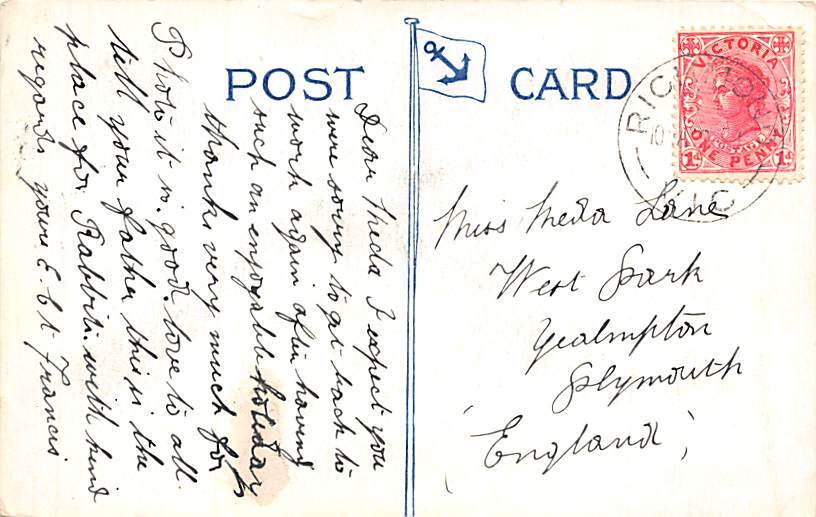 POST CARD
Dear Meda I expect you
were sorry to go back to
work again after having
such an enjoyable holiday
thanks very much for
Photo it is good. love to all
tell your father this is the
place for Rabbits. with kind
regards yours E. & t. Francis
VICTORIA
POSTAGE
ONE PENNY
1d 1d
RICHMOND
VIC
Miss Meda Lane
West Park
Yealmpton
Plymouth
England